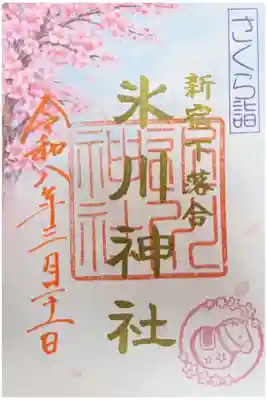 さくら詣
新宿下落合
氷川神社
令和八年三月二十一日